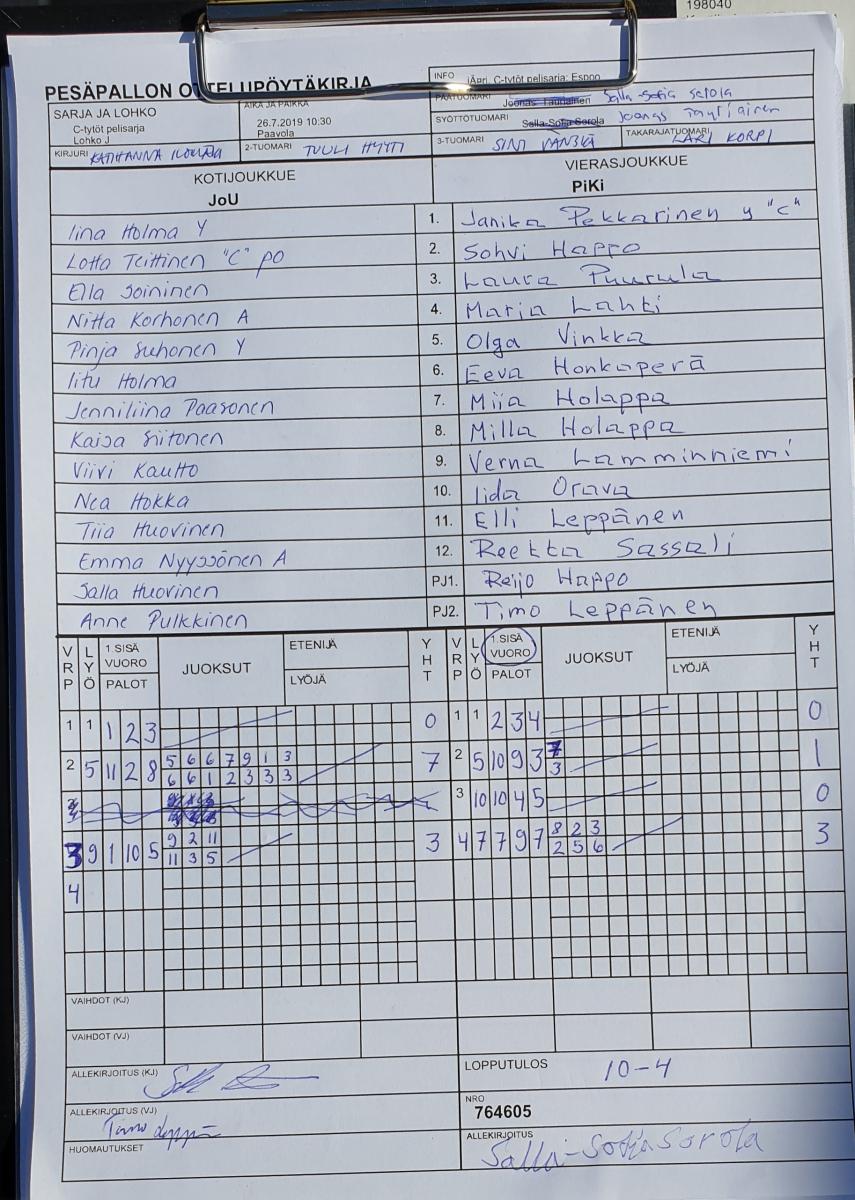 198040
PESÄPALLON OTTELUPÖYTÄKIRJA
INFO C-tytöt pelisarja: Espoo
SARJA JA LOHKO
C-tytöt pelisarja
Lohko J
AIKA JA PAIKKA
26.7.2019 10:30
Paavola
PÄÄTUOMARI Joonas Tauriainen Salla-Sofia Sorola
SYÖTTÖTUOMARI Salla-Sofia Sorola Joonas Tauriainen
KIRJURI KATIHANNA
2-TUOMARI TUULI HYTTI
3-TUOMARI SINI VÄNSKÄ
TAKARAJATUOMARI LARI KORPI
KOTIJOUKKUE VIERASJOUKKUE
JoU PiKi
Iina Holma Y 1. Janika Pekkarinen y "c"
Lotta Teittinen "C" po 2. Sohvi Happo
Ella Soininen 3. Laura Puurula
Nitta Korhonen A 4. Marja Lahti
Pinja Suhonen Y 5. Olga Vinkka
Iitu Holma 6. Eeva Honkaperä
Jenniliina Paasonen 7. Miia Holappa
Kaisa Siitonen 8. Milla Holappa
Viivi Kautto 9. Verna Lamminniemi
Nea Hokka 10. Iida Orava
Tiia Huovinen 11. Elli Leppänen
Emma Nyyssönen A 12. Reetta Sassali
Salla Huovinen PJ1. Reijo Happo
Anne Pulkkinen PJ2. Timo Leppänen
VRP LYÖ 1.SISÄ VUORO PALOT JUOKSUT ETENIJÄ LYÖJÄ YHT VRP LYÖ 1.SISÄ VUORO PALOT JUOKSUT ETENIJÄ LYÖJÄ YHT
1 1 1 2 3 0 1 1 2 3 4 0
2 5 11 2 8 5 6 6 7 9 1 3 7 2 5 10 9 3 7 1
6 6 1 2 3 3 3 3
3 10 10 4 5 0
3 9 1 10 5 9 2 11 3 4 7 7 9 7 8 2 3 3
11 3 5 2 5 6
4
VAIHDOT (KJ)
VAIHDOT (VJ)
ALLEKIRJOITUS (KJ)
LOPPUTULOS 10-4
ALLEKIRJOITUS (VJ) Timo
NRO
764605
HUOMAUTUKSET
ALLEKIRJOITUS Salla-Sofia Sorola